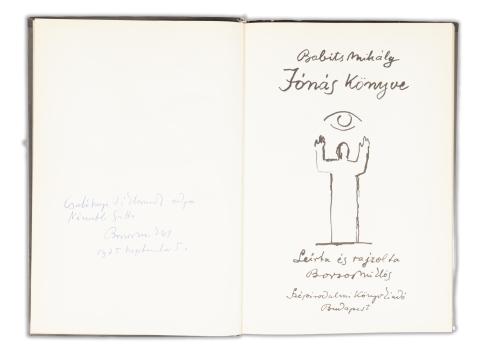 Németh
Borsos Miklós
1975 september 5.
Babits Mihály
Jónás Könyve
Leírta és rajzolta
Borsos Miklós
Szépirodalmi Könyvkiadó
Budapest